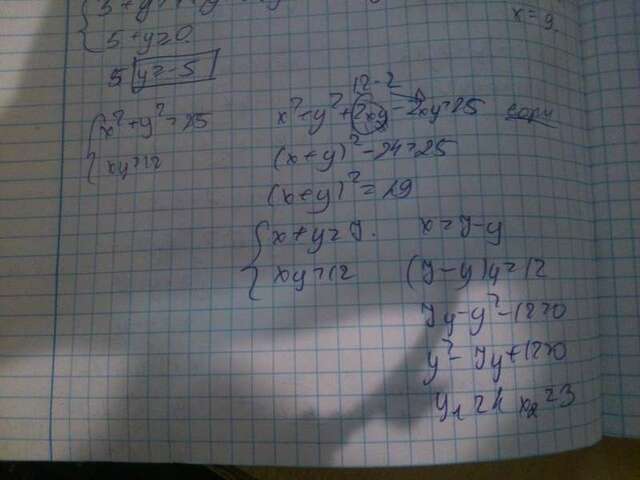 5 + y = 0
5 y = -5
x = 9
{ x² + y² = 25
xy = 12
12·2
x² + y² + 2xy - 2xy = 25
(x+y)² - 24 = 25
(x+y)² = 49
{ x + y = 7.
xy = 12
x = 7 - y
(7 - y) y = 12
7y - y² - 12 = 0
y² - 7y + 12 = 0
y₁ = 4 x₂ = 3